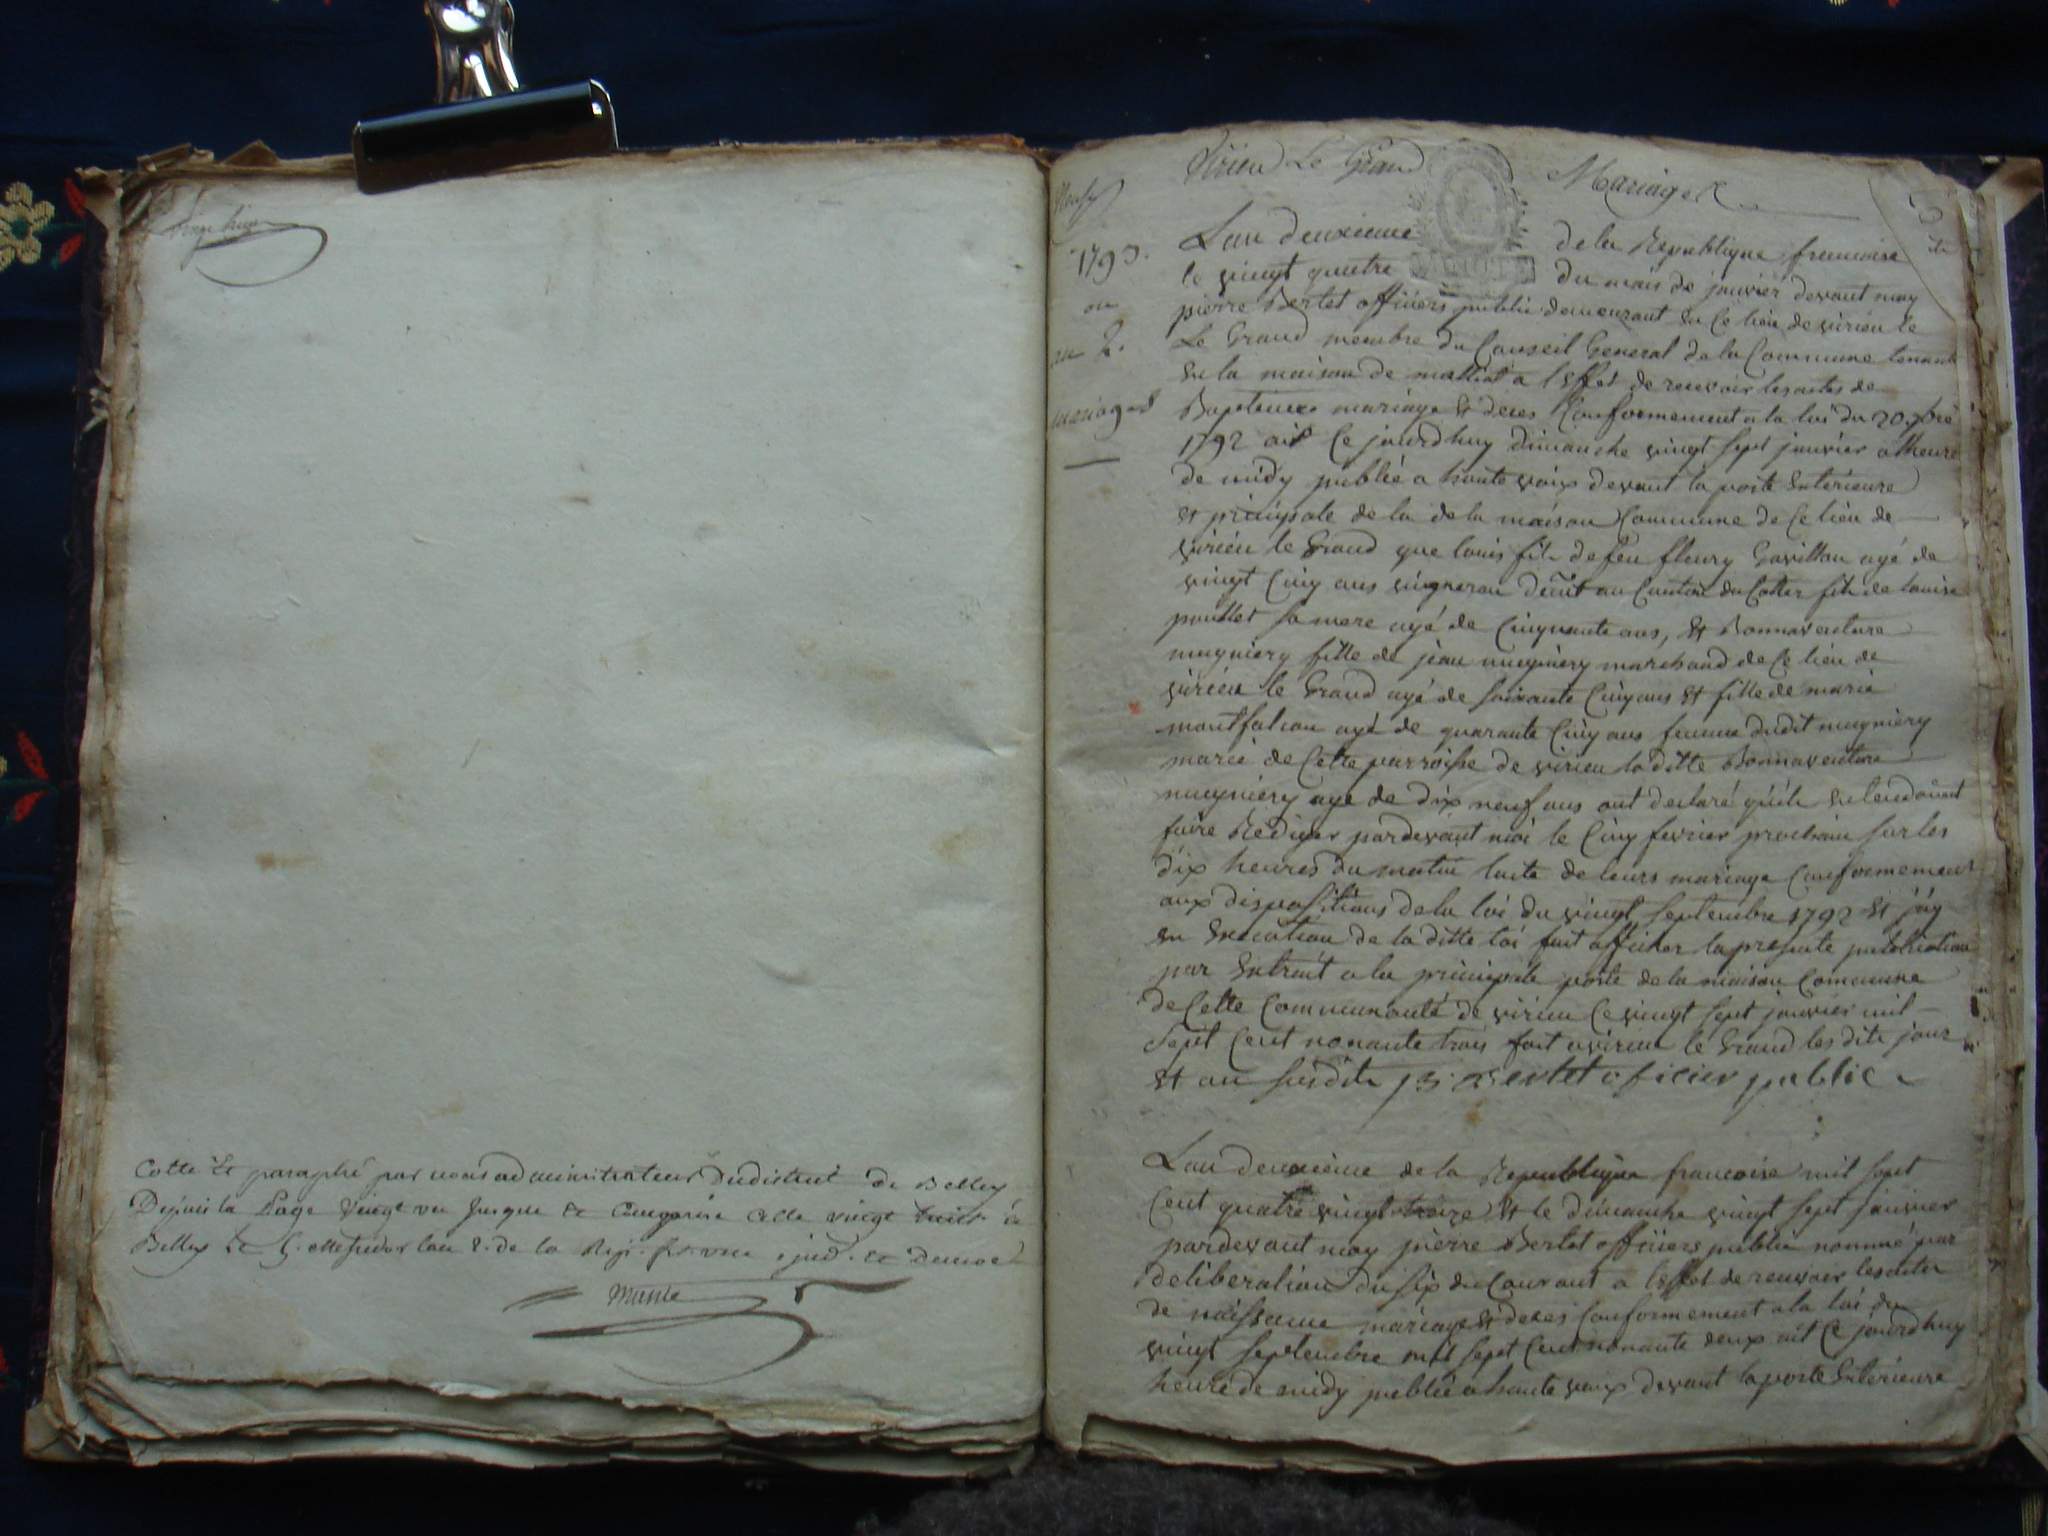 vingt huit
Cotté Et paraphé par nous administrateur du district de Belley
Depuis la Page vingt un Jusque Et Comprise Celle vingt huit à
Belley Le 5 Messidor lan 2 de la Rep. fr. une, ind. et democ.
Virieu Le Grand
Mariages
neuf
1793.
ou
an 2.
mariages
Lan deuxieme de la Republique francoise
le vingt quatre du mois de janvier devant moy
pierre Bertet officiers public demeurant en ce lieu de virieu le
Le Grand membre du Conseil General de la Commune tenant
En la maison de a l'Effet de recevoir les actes de
Bapteme mariage Et deces Conformement a la loi du 20 7bre
1792 ait Ce jourdhuy dimanche vingt sept janvier a lheure
de midy publié a haute voix devant la porte Exterieure
Et principale de la de la maison Commune de Ce lieu de
virieu le Grand que louis fils de feu fleury Gavillon agé de
vingt Cinq ans vigneron au fils de louise
poullet sa mere agé de Cinquante ans, Et Bonnaventure
mugniery fille de jean mugniery marchand de Ce lieu de
virieu le Grand agé de soixante Cinq ans Et fille de marie
montfalcon agé de quarante Cinq ans femme dudit mugniery
marié de Cette parroisse de virieu la ditte Bonnaventure
mugniery age de dix neuf ans ont declaré quils Entendoient
faire Rédiger pardevant moi le Cinq fevrier prochain sur les
dix heures du matin lacte de leurs mariage Conformement
aux dispositions de la loi du vingt septembre 1792 Et j'ay
en Execution de la ditte loi fait afficher la presente publication
par Extrait a la principale porte de la maison Commune
de Cette Communauté de virieu Ce vingt sept janvier mil
Sept Cent nonante trois fait a virieu le Grand les dits jour
Et an susdits p. Bertet oficier public
Lan deuxième de la Republique francoise mil sept
Cent quatre vingt treize Et le dimanche vingt sept janvier
pardevant moy pierre Bertet officiers public nommé par
deliberation du six du Courant a l'Effet de recevoir les actes
de naissance mariage Et deces Conformement a la loi du
vingt septembre mil sept Cent nonante deux ait Ce jourdhuy
heure de midy publié a haute voix devant la porte Exterieure